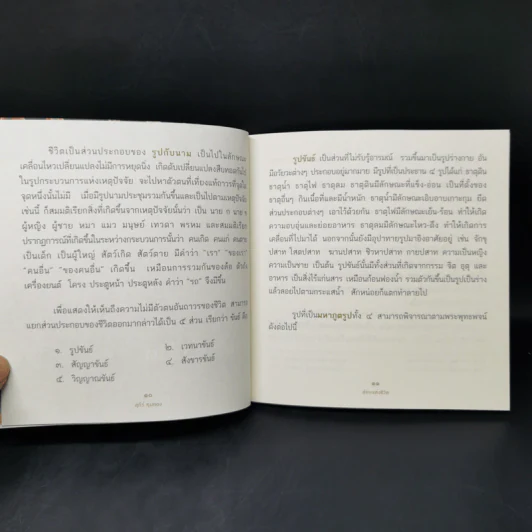 ชีวิตเป็นส่วนประกอบของ รูปกับนาม เป็นไปในลักษณะ
เคลื่อนไหวเปลี่ยนแปลงไม่มีการหยุดนิ่ง เกิดดับเปลี่ยนแปลงสืบทอดกันไป
ในรูปกระบวนการแห่งเหตุปัจจัย จะไปหาตัวตนที่เที่ยงแท้ถาวรที่จุดใด
จุดหนึ่งนั้นไม่มี เมื่อมีรูปนามประชุมรวมกันขึ้นและเป็นไปตามเหตุปัจจัย
เช่นนี้ ก็สมมติเรียกสิ่งที่เกิดขึ้นจากเหตุปัจจัยนั้นว่า เป็น นาย ก นาง ข
ผู้หญิง ผู้ชาย หมา แมว มนุษย์ เทวดา พรหม และสมมติเรียก
ปรากฏการณ์ที่เกิดขึ้นในระหว่างกระบวนการนั้นว่า คนเกิด คนแก่ คนตาย
เป็นเด็ก เป็นผู้ใหญ่ สัตว์เกิด สัตว์ตาย มีคำว่า "เรา" "ของเรา"
"คนอื่น" "ของคนอื่น" เกิดขึ้น เหมือนการรวมกันของล้อ ตัวถัง
เครื่องยนต์ โครง ประตูหน้า ประตูหลัง คำว่า "รถ" จึงมีขึ้น
เพื่อแสดงให้เห็นถึงความไม่มีตัวตนอันถาวรของชีวิต สามารถ
แยกส่วนประกอบของชีวิตออกมากล่าวได้เป็น ๕ ส่วน เรียกว่า ขันธ์ คือ
๑. รูปขันธ์ ๒. เวทนาขันธ์
๓. สัญญาขันธ์ ๔. สังขารขันธ์
๕. วิญญาณขันธ์
๑๐
รูปขันธ์ เป็นส่วนที่ไม่รับรู้อารมณ์ รวมขึ้นมาเป็นรูปร่างกาย อัน
มีอวัยวะต่างๆ ประกอบอยู่มากมาย มีรูปที่เป็นประธาน ๔ รูปได้แก่ ธาตุดิน
ธาตุน้ำ ธาตุไฟ ธาตุลม ธาตุดินมีลักษณะที่แข็ง-อ่อน เป็นที่ตั้งของ
ธาตุอื่นๆ กินเนื้อที่และมีน้ำหนัก ธาตุน้ำมีลักษณะเอิบอาบเกาะกุม ยึด
ส่วนประกอบต่างๆ เอาไว้ด้วยกัน ธาตุไฟมีลักษณะเย็น-ร้อน ทำให้เกิด
ความอบอุ่นและย่อยอาหาร ธาตุลมมีลักษณะไหว-ตึง ทำให้เกิดการ
เคลื่อนที่ไปมาได้ นอกจากนั้นยังมีอุปาทายรูปมาอิงอาศัยอยู่ เช่น จักขุ
ปสาท โสตปสาท ฆานปสาท ชิวหาปสาท กายปสาท ความเป็นหญิง
ความเป็นชาย เป็นต้น รูปขันธ์นี้มีทั้งส่วนที่เกิดจากกรรม จิต อุตุ และ
อาหาร เป็นสิ่งไร้แก่นสาร เหมือนก้อนฟองน้ำ รวมตัวกันขึ้นเป็นรูปเป็นร่าง
แล้วลอยไปตามกระแสน้ำ สักหน่อยก็แตกทำลายไป
รูปที่เป็นมหาภูตรูปทั้ง ๔ สามารถพิจารณาตามพระพุทธพจน์
ดังต่อไปนี้
๑๑